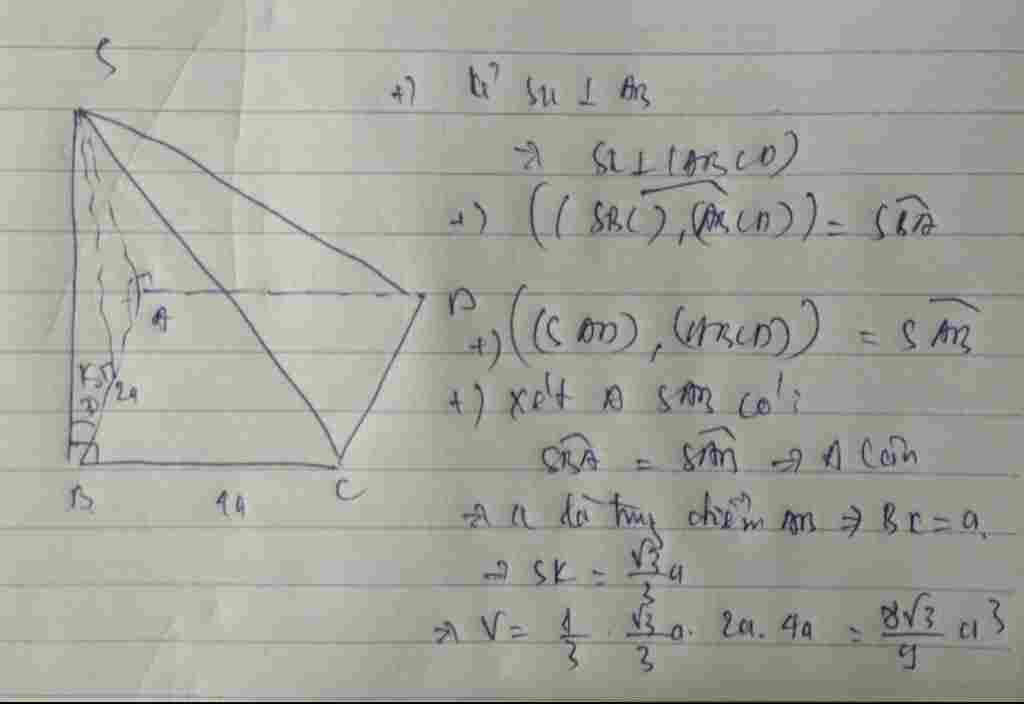 S
+) kẻ SK ⊥ AB
→ SK ⊥ (ABCD)
+) ((SBC), (ABCD)) = SBA
D
+) ((SAD), (ABCD)) = SAB
A
K
2a
+) xét Δ SAB có:
SBA = SAB → Δ cân
B
4a
C
→ K là trung điểm AB → BK = a.
→ SK = √3/3 a
→ V = 1/3 . √3/3 a . 2a . 4a = 8√3/9 a³